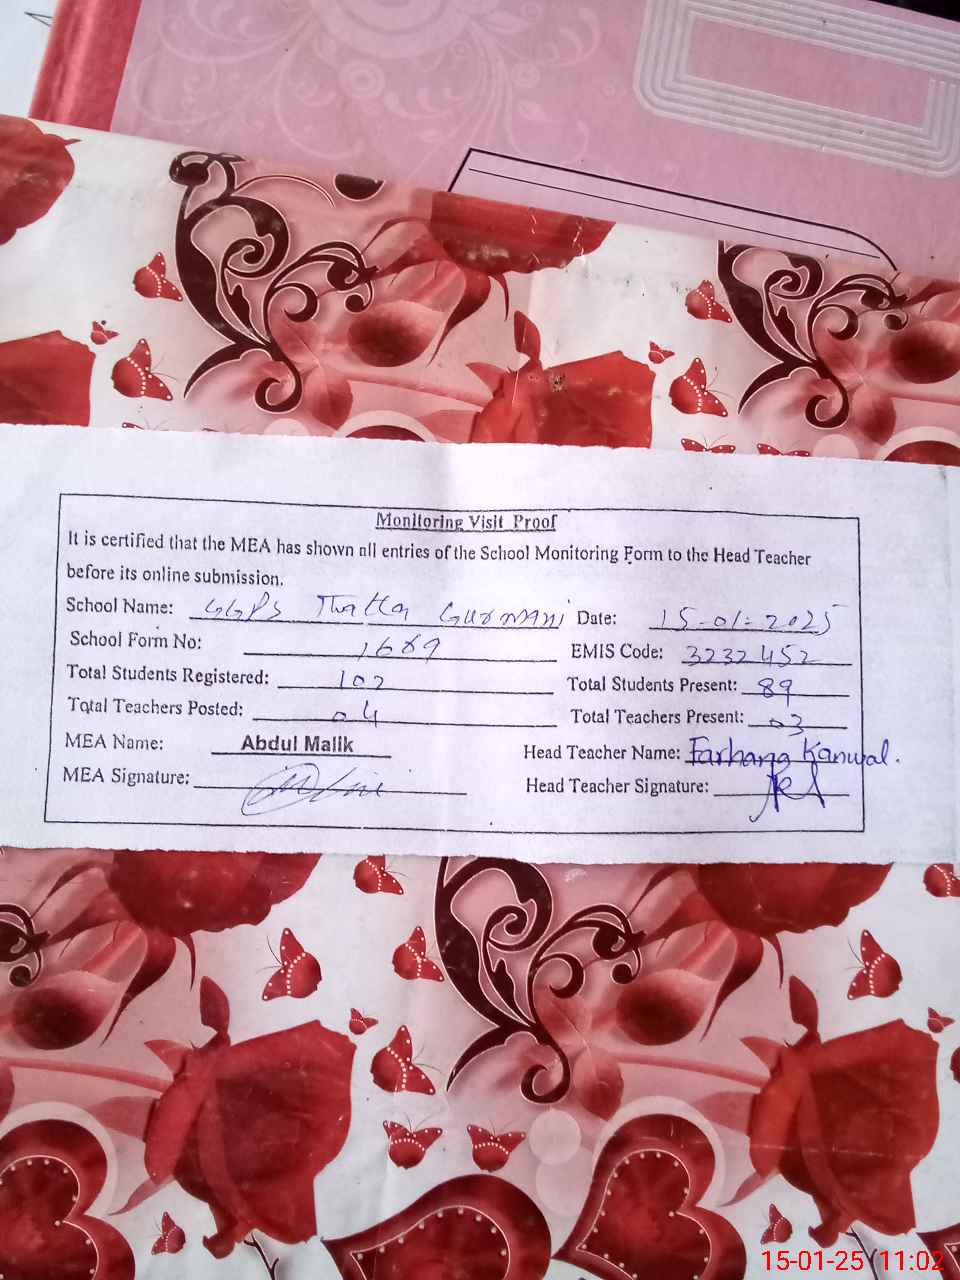 Monitoring Visit Proof
It is certified that the MEA has shown all entries of the School Monitoring Form to the Head Teacher
before its online submission.
School Name: GGPS Thatta Gurmani Date: 15-01-2025
School Form No: 1689 EMIS Code: 3232452
Total Students Registered: 102 Total Students Present: 89
Total Teachers Posted: 04 Total Teachers Present: 03
MEA Name: Abdul Malik Head Teacher Name: Farhana Kanwal.
MEA Signature: Head Teacher Signature:
15-01-25 11:02